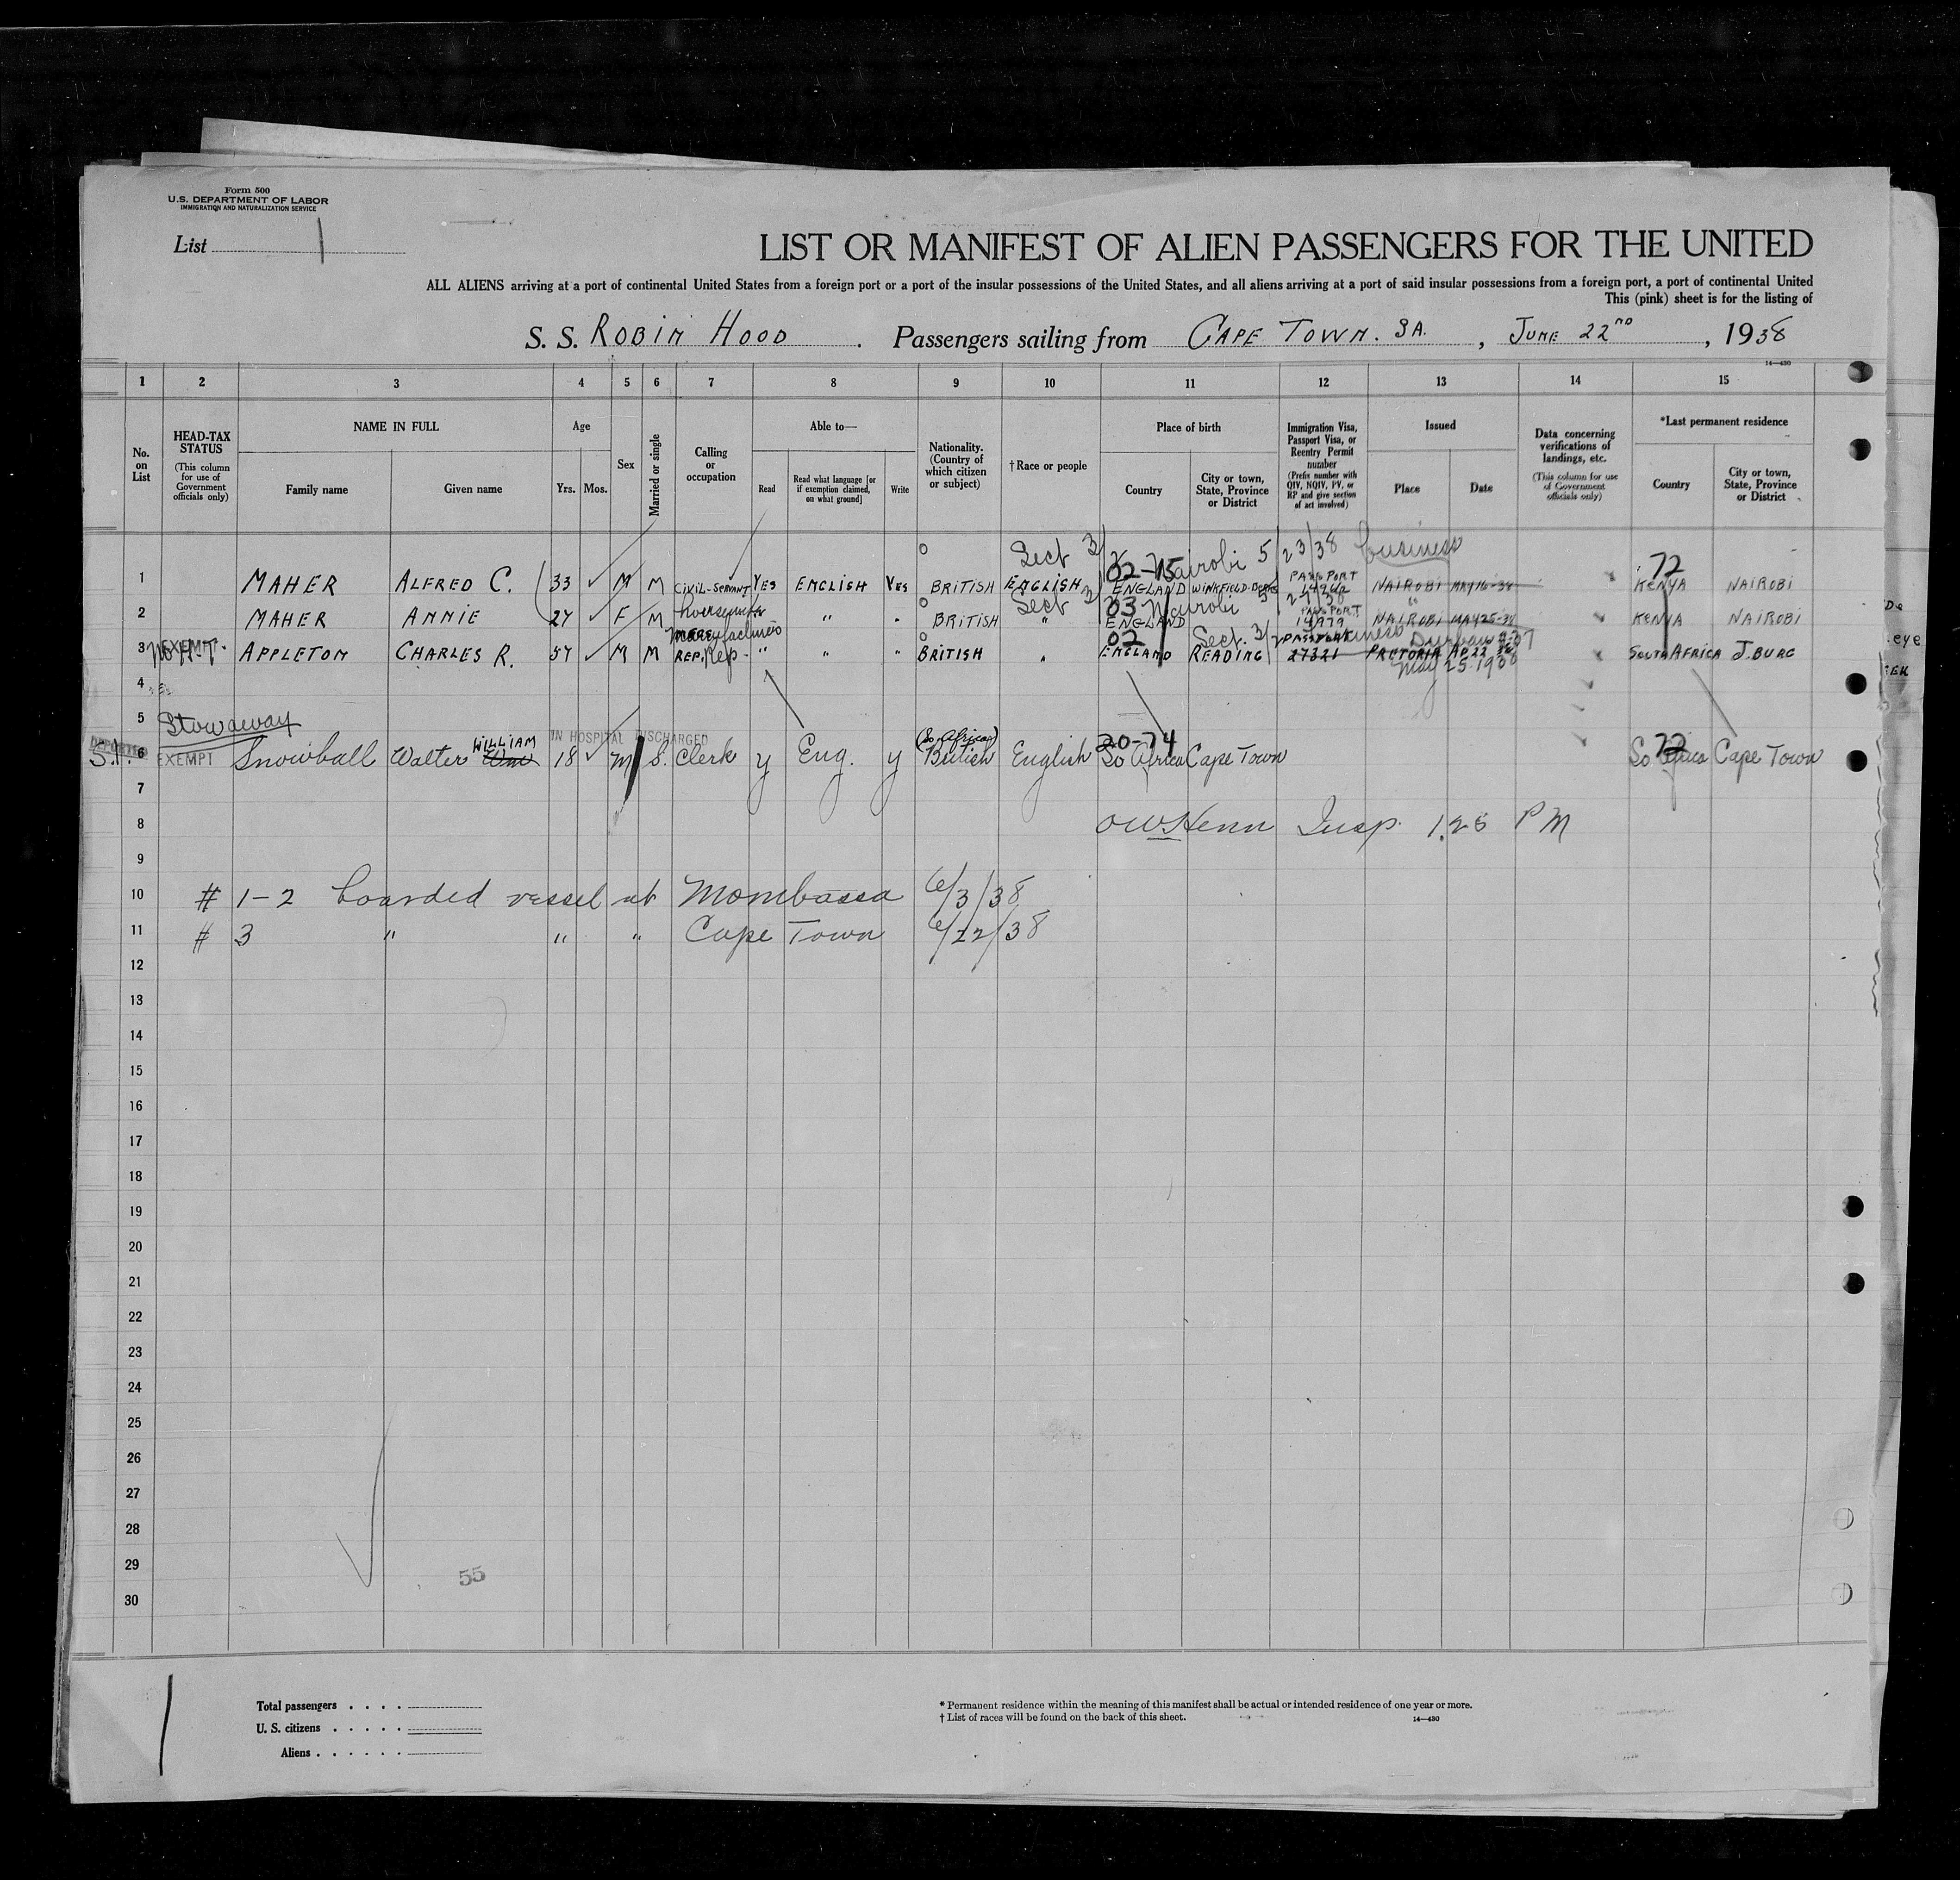 Form 500
U.S. DEPARTMENT OF LABOR
IMMIGRATION AND NATURALIZATION SERVICE
List 1
LIST OR MANIFEST OF ALIEN PASSENGERS FOR THE UNITED
ALL ALIENS arriving at a port of continental United States from a foreign port or a port of the insular possessions of the United States, and all aliens arriving at a port of said insular possessions from a foreign port, a port of continental United
This (pink) sheet is for the listing of
S. S. ROBIN HOOD . Passengers sailing from CAPE TOWN. SA. , JUNE 22ND , 1938
14—430
1 2 3 4 5 6 7 8 9 10 11 12 13 14 15
No. on List
HEAD-TAX STATUS
(This column for use of Government officials only)
NAME IN FULL
Family name Given name
Age
Yrs. Mos.
Sex
Married or single
Calling or occupation
Able to—
Read
Read what language [or if exemption claimed, on what ground]
Write
Nationality. (Country of which citizen or subject)
†Race or people
Place of birth
Country
City or town, State, Province or District
Immigration Visa, Passport Visa, or Reentry Permit number
(Prefix number with QIV, NQIV, PV, or RP and give section of act involved)
Issued
Place Date
Data concerning verifications of landings, etc.
(This column for use of Government officials only)
*Last permanent residence
Country
City or town, State, Province or District
Sect 3 Nairobi 5/23/38 business
02-75 72
1 MAHER ALFRED C. 33 M M CIVIL-SERVANT YES ENGLISH YES BRITISH ENGLISH ENGLAND WINKFIELD PASSPORT NAIROBI KENYA NAIROBI
Sect 3 03 Nairobi
2 MAHER ANNIE 27 F M housewife " " BRITISH " ENGLAND PASSPORT 14979 NAIROBI MAY 25-38 KENYA NAIROBI
manufacturers 02 Sect. 3 PASSPORT Durban
3 EXEMPT APPLETON CHARLES R. 57 M M REP. Rep - " " " BRITISH " ENGLAND READING 27321 PRETORIA AP 22 SOUTH AFRICA J.BURG
May 25 1938
4
5 Stowaway
IN HOSPITAL DISCHARGED
DEPORTED
WILLIAM (So. African) 20-74 72
S.I. 6 EXEMPT Snowball Walter Wm 18 M S. Clerk y Eng. y British English So Africa Cape Town So. Africa Cape Town
7
8 OWHenn Insp. 1.25 PM
9
10 # 1-2 boarded vessel at Mombassa 6/3/38
11 # 3 " " " Cape Town 6/22/38
12
13
14
15
16
17
18
19
20
21
22
23
24
25
26
27
28
29
55
30
Total passengers . . . .
U. S. citizens . . . . .
Aliens . . . . . .
* Permanent residence within the meaning of this manifest shall be actual or intended residence of one year or more.
† List of races will be found on the back of this sheet.
14—430